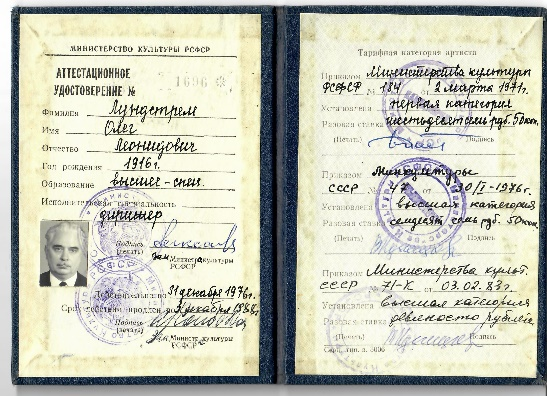 МИНИСТЕРСТВО КУЛЬТУРЫ РСФСР
АТТЕСТАЦИОННОЕ
УДОСТОВЕРЕНИЕ № 1696
Фамилия Лундстрем
Имя Олег
Отчество Леонидович
Год рождения 1916г.
Образование высшее-спец.
Исполнительская специальность
дирижер
Подпись
(печать)
Зам. Министра культуры
РСФСР
Действительно по 31 декабря 1976г.
Срок действия продлен по
Подпись
(печать)
Зам. Министр культуры
РСФСР
Тарифная категория артиста
Приказом Министерства культуры
РСФСР № 184 от 2 марта 1971г.
Установлена первая категория
Разовая ставка пятьдесят семь руб. 50 коп.
(Печать) Подпись
Приказом Минкультуры
СССР № 47 от 30/I-1976г.
Установлена высшая категория
Разовая ставка семьдесят семь руб. 50 коп.
(Печать) Подпись
Приказом Министерства культ.
СССР № 71-К от 03.02.83г.
Установлена высшая категория
Разовая ставка девяносто рублей
(Печать) Подпись